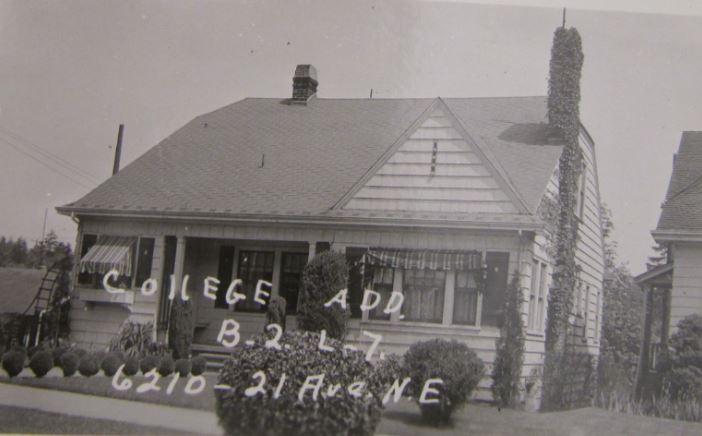 College Add.
B-2 L-7.
6210-21 Ave. N.E